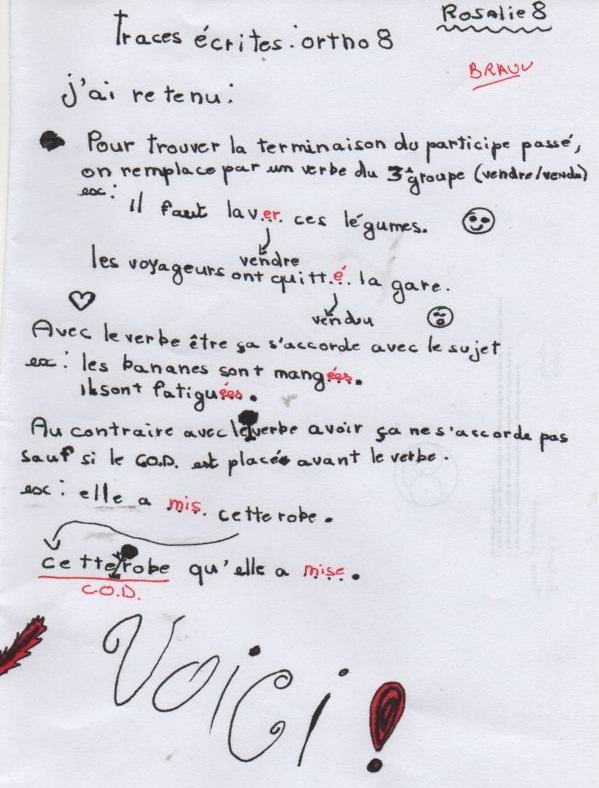 Rosalie 8
Traces écrites : ortho 8
BRAVO
j'ai retenu :
Pour trouver la terminaison du participe passé,
on remplace par un verbe du 3e groupe (vendre/vendu)
ex :
il faut laver ces légumes.
vendre
les voyageurs ont quitté la gare.
vendu
Avec le verbe être ça s'accorde avec le sujet
ex : les bananes sont mangées.
ils sont fatiguées.
Au contraire avec le verbe avoir ça ne s'accorde pas
sauf si le C.O.D. est placé avant le verbe.
ex : elle a mis cette robe.
cette robe qu'elle a mise.
C.O.D.
VOiCi !